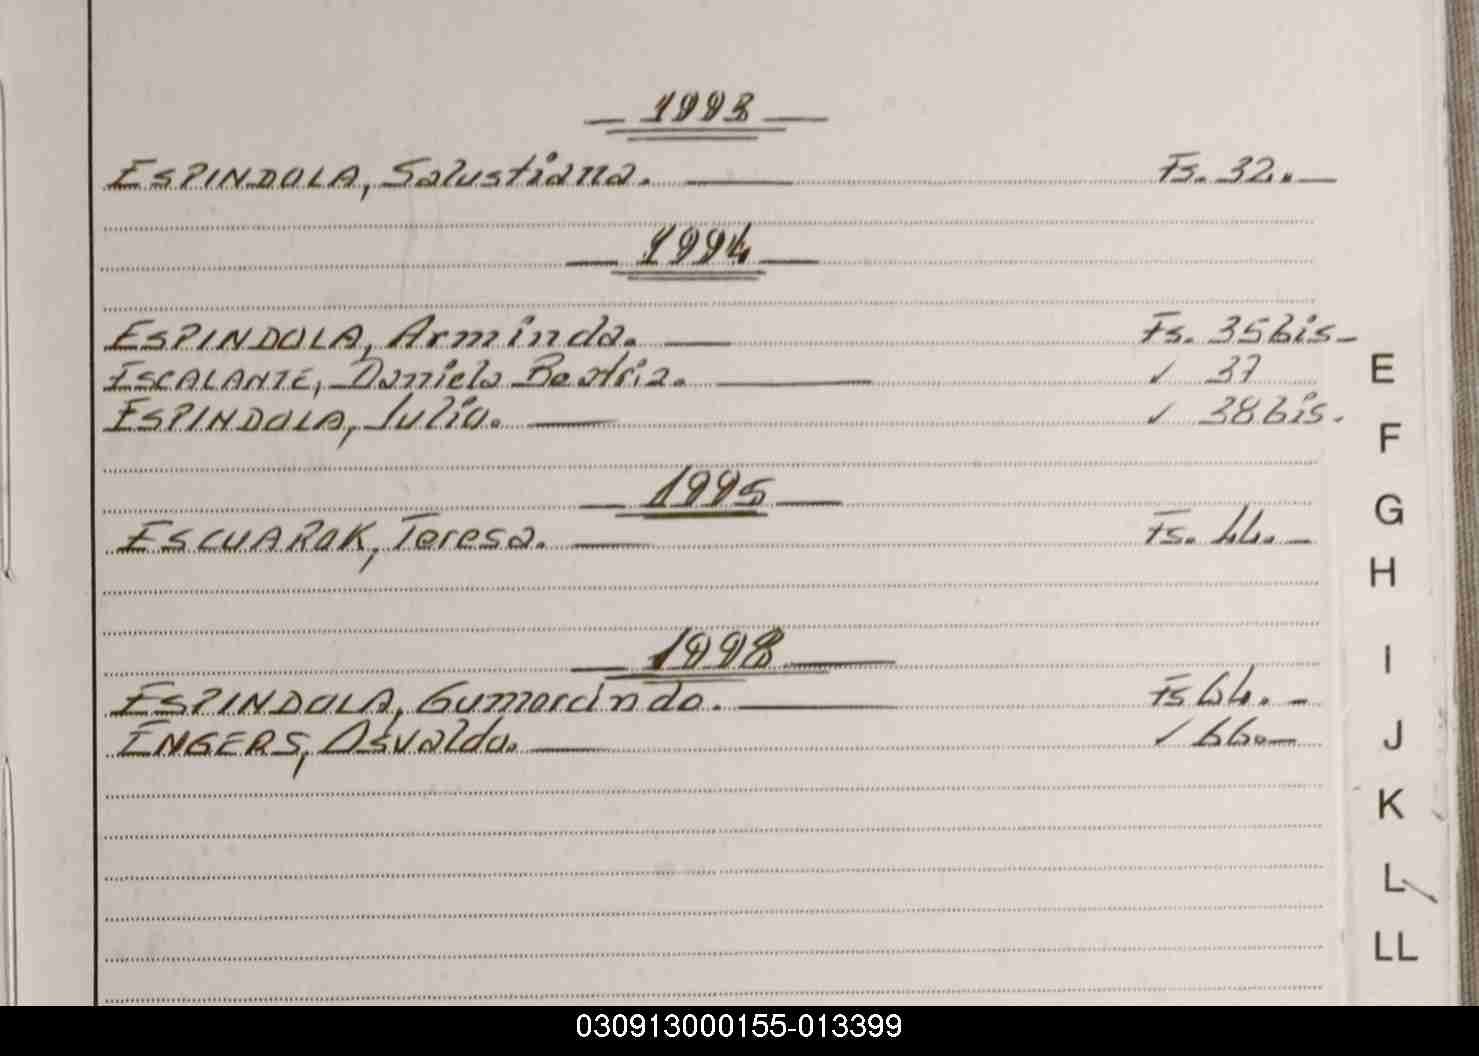 — 1993 —
ESPINDOLA, Salustiana. — Fs. 32. —
— 1994 —
ESPINDOLA, Arminda. — Fs. 35 bis —
ESCALANTE, Daniela Beatriz. — ✓ 37
ESPINDOLA, Julio. — ✓ 38 bis.
— 1995 —
ESCUAROK, Teresa. — Fs. 44. —
— 1998 —
ESPINDOLA, Gumercindo. — Fs 64. —
ENGERS, Osvaldo. — ✓ 66. —
E
F
G
H
I
J
K
L
LL
030913000155-013399